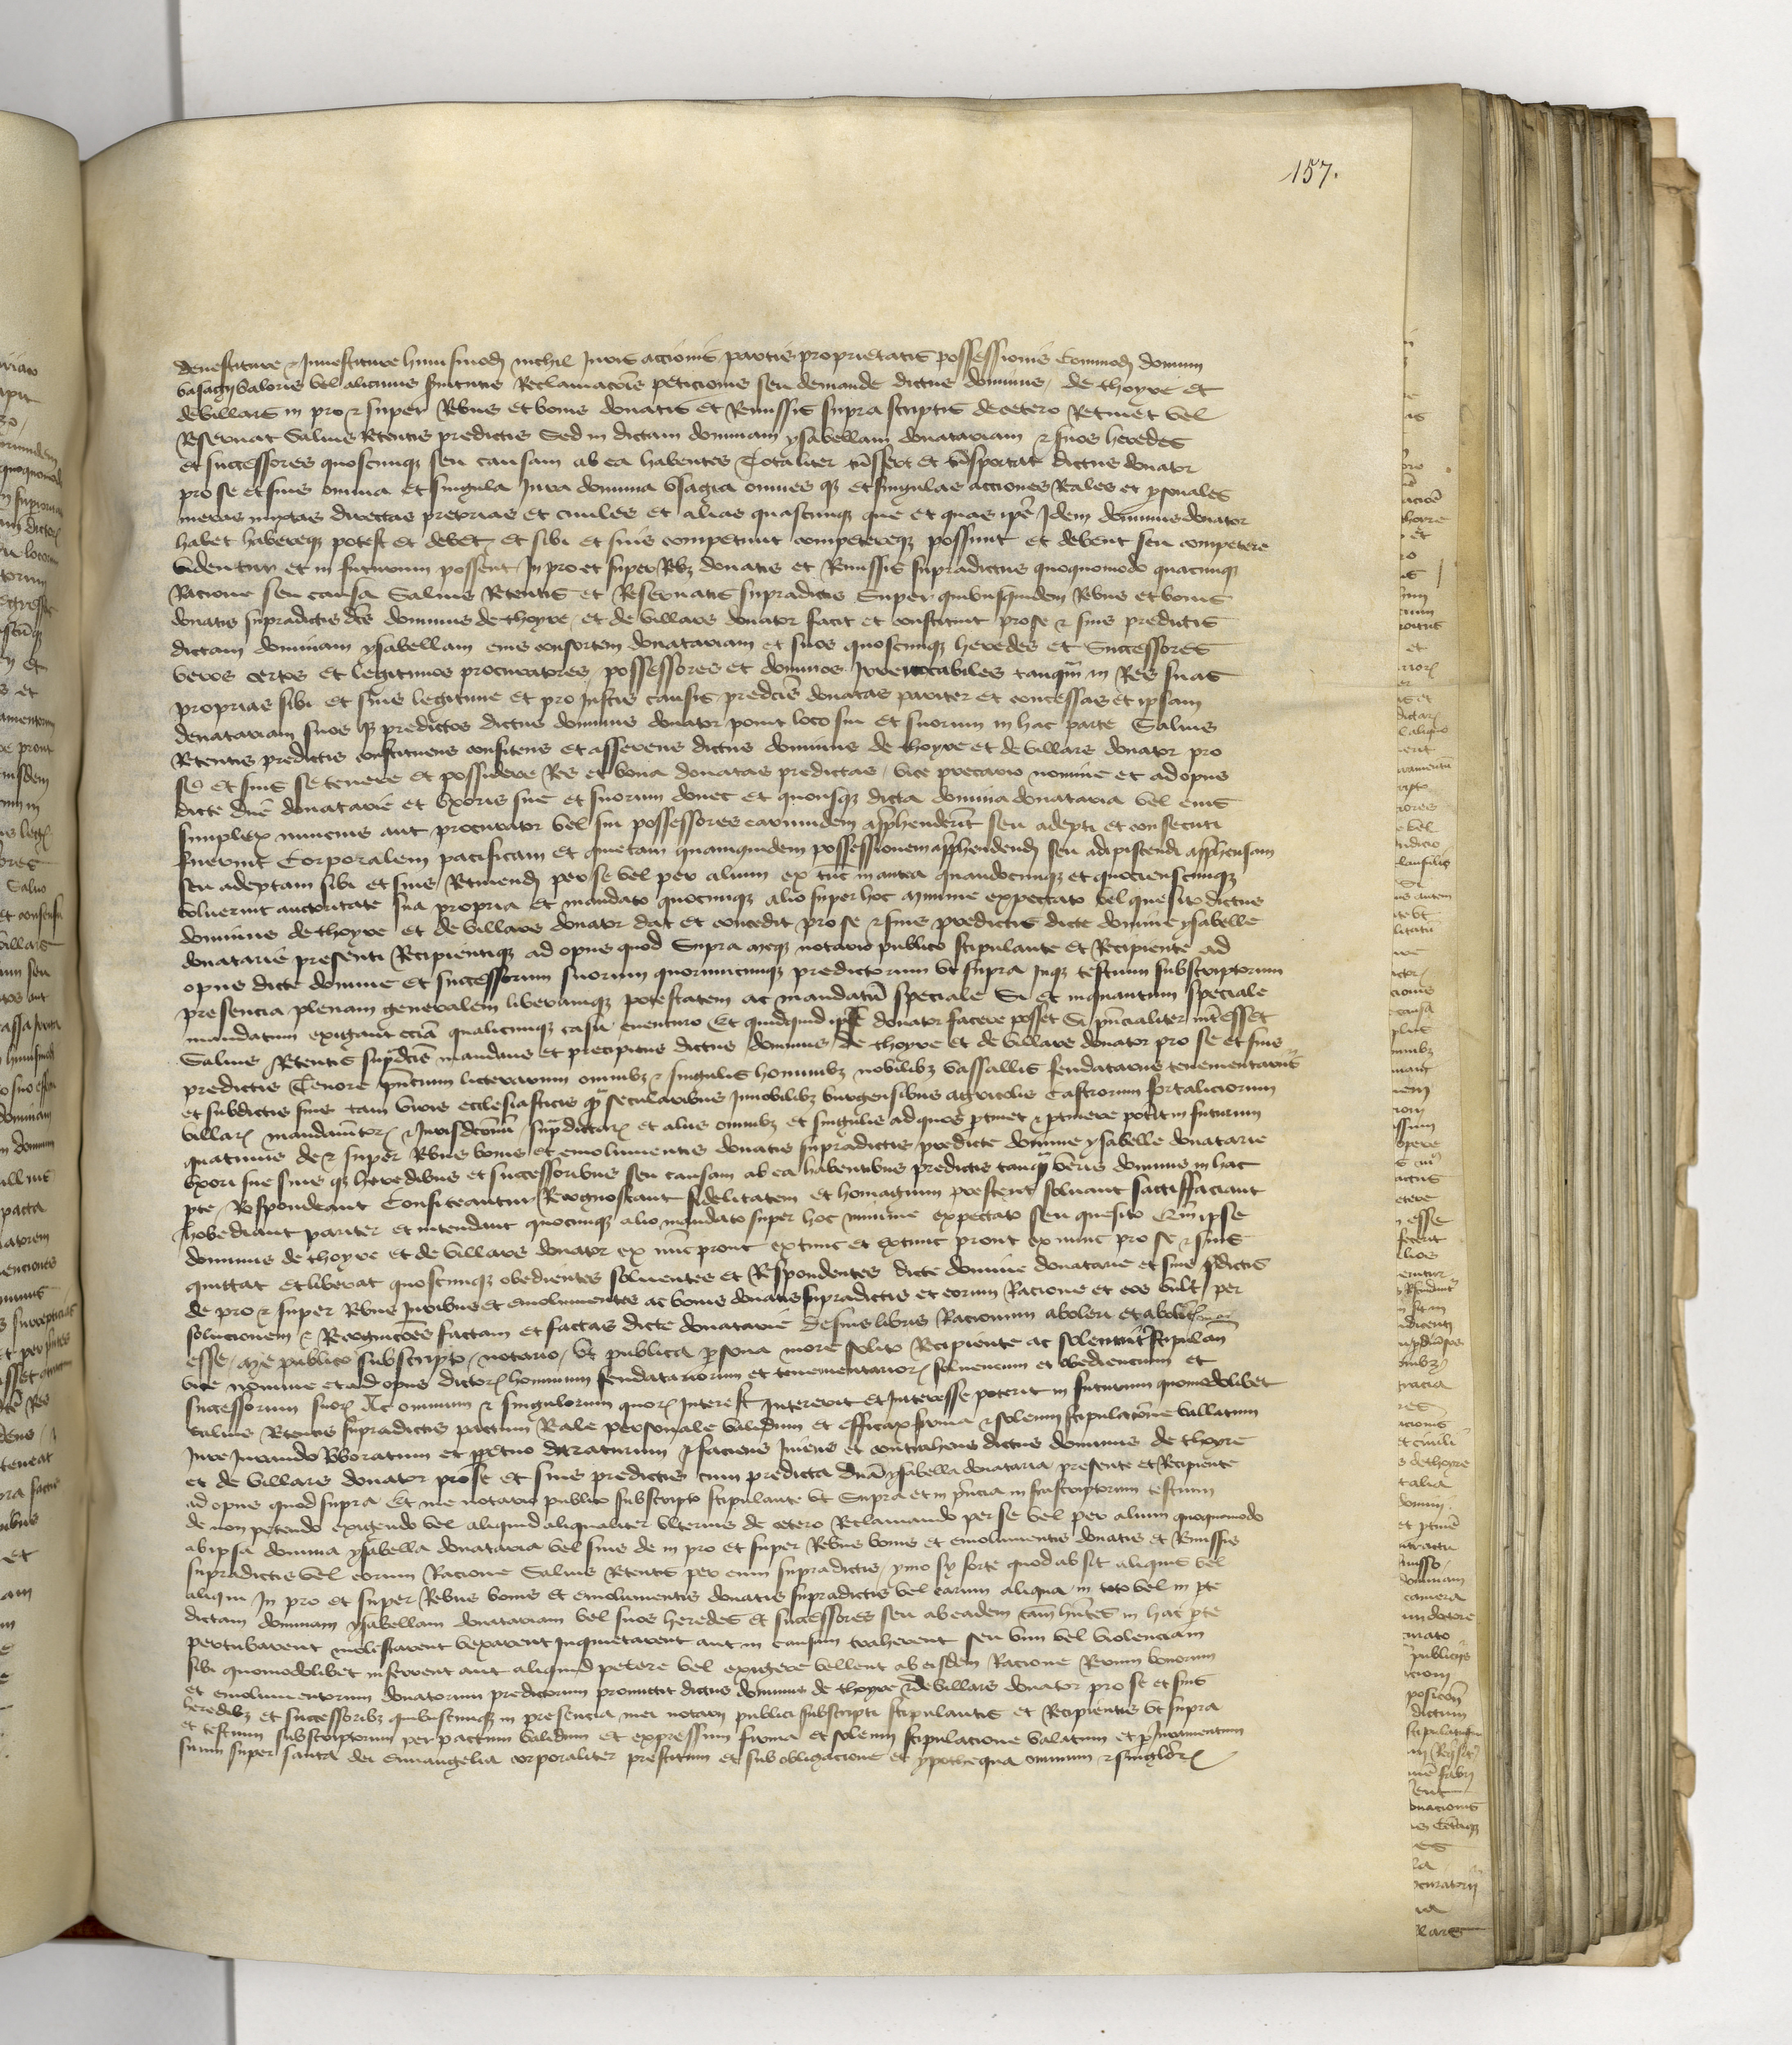 157.
devestiture et Investiture huiusmodi nichil Iuris accionis partis proprietatis possessionis Commodi domini
vasagii valoris vel alicuius fructus Reclamacois peticionis seu demande dictus dominus de thoyre et
de villars in pro et super Rebus et bonis donatis et Remissis supra scriptis de cetero Retinet vel
Reservat Salvis Retentis predictis Sed in dictam dominam ysabellam donatariam et suos heredes
et successores quoscumque seu causam ab ea habentes Totaliter transfert et transportat dictus donator
pro se et suis omnia et singula Iura dominia Usagia omnes que et singulas acciones Reales et personales
meras mixtas directas pretorias et civiles et alias quascumque que et quas ipse Idem dominus donator
habet habereque potest et debet et sibi et suis competunt competereque possunt et debent seu competere
videntur et in futurum possent In pro et super Rebus donatis et Remissis supradictis quoquomodo quacumque
Racione seu causa Salvis Retentis et Reservatis supradictis Super quibusquidem Rebus et bonis
donatis supradictis dictus dominus de thoyre et de villars donator facit et constituit pro se et suis predictis
dictam dominam ysabellam eius consortem donatariam et suos quoscumque heredes et Successores
veros certos et legitimos procuratores possessores et dominos Irrevocabiles tanquam in Res suas
proprias sibi et suis legitime et pro Iustis causis predictis donatas pariter et concessas et ipsam
donatariam suos que predictos dictus dominus donator ponit loco sui et suorum in hac parte Salvis
Retentis predictis constituens confitens et asserens dictus dominus de thoyre et de villars donator pro
se et suis se tenere et possidere Res et bona donatas predictas vice precario nomine et ad opus
dicte domine donatarie et Uxoris sue et suorum donec et quousque dicta domina donataria vel eius
simplex nuncius aut procurator vel sui possessores earumdem apprehenderint seu adepti et consecuti
fuerint Corporalem pacificam et quietam quamquidem possessionem apprehendendi seu adipiscendi apprehensam
seu adeptam sibi et suis Retinendi per se vel per alium ex tunc in antea quandocumque et quocienscumque
voluerint auctoritate sua propria et mandato quocumque alio super hoc minime expectato vel quesito dictus
dominus de thoyre et de villars donator dat et concedit pro se et suis predictis dicte domine ysabelle
donatarie presenti Recipientique ad opus quod Supra meque notario publico stipulante et Recipiente ad
opus dicte domine et successorum suorum quorumcumque predictorum ut supra Inque testium subscriptorum
presencia plenam generalem liberamque potestatem ac mandatum speciale Si et inquantum speciale
mandatum exigant eciam qualicumque casu eventuro Et quidquid ipse donator facere posset Si principaliter interesset
Salvis Retentis supradictis mandans et precipiens dictus dominus de thoyre et de villars donator pro se et suis
predictis Tenore presencium licterarum omnibus et singulis hominibus nobilibus vassallis feudatariis tenementariis
et subdictis suis tam viris ecclesiasticis quam secularibus Innobilibus burgensibus agricolis Castrorum fortaliciorum
villarum mandamentorum et Iurisdictionum supradictarum et aliis omnibus et singulis ad quos pertinet et pertinere poterit in futurum
quatinus de et super Rebus bonis et emolumentis donatis supradictis predicte domine ysabelle donatarie
Uxori sue suis que heredibus et successoribus seu causam ab ea habentibus predictis tanquam veris dominis in hac
parte Respondeant Confiteantur Recognoscant fidelitatem et homagium prestent solvant satisffaciant
hobediant pariter et intendant quocumque alio mandato super hoc minime expectato seu quesito Quoniam ipse
dominus de thoyre et de villars donator ex nunc prout ex tunc et ex tunc prout ex nunc pro se et suis
quittat et liberat quoscumque obedientes solventes et Respondentes dicte domine donatarie et suis predictis
de pro et super Rebus Iuribus et emolumentis ac bonis donatis supradictis et eorum Racione et eos vult per
solucionem et Recogniciones factam et factas dicte donatarie de suis libris Racionum aboleri et abolitos
esse me publico subscripto notario ut publica persona more solito Recipiente ac solenniter stipulan
vice nomine et ad opus dictorum hominum feudatariorum et tenementariorum solvencium et obediencium et
successorum suorum Ac omnium et singulorum quorum Interest Intererit et Interesse poterit in futurum quomodolibet
Salvis Retentis supradictis pactum Reale personale validum et efficax firma et solenni stipulacione vallatum
Iure Iurando Roboratum et perpetuo duraturum faciens Iniens et contrahens dictus dominus de thoyre
et de villars donator pro se et suis predictis cum predicta domina ysabella donataria presente et Recipiente
ad opus quod supra Et me notario publico subscripto stipulante ut Supra et in presencia infrascriptorum testium
de non petendo exigendo vel aliquid aliqualiter ulterius de cetero Reclamando per se vel per alium quoquomodo
ab ipsa domina ysabella donataria vel suis de in pro et super Rebus bonis et emolumentis donatis et Remissis
supradictis vel eorum Racione Salvis Retentis per eum supradictis ymo sy forte quod absit aliquis vel
aliqui In pro et super Rebus bonis et emolumentis donatis supradictis vel earum aliqua in toto vel in parte
dictam dominam ysabellam donatariam vel suos heredes et successores seu ab eadem causam habentes in hac parte
perturbarent molestarent vexarent Inquietarent aut in causam traherent seu vim vel violenciam
sibi quomodolibet inferrent aut aliquid petere vel exigere vellent ab eisdem Racione Rerum bonorum
et emolumentorum donatorum predictorum promictit dictus dominus de thoyre et de villars donator pro se et suis
heredibus et successoribus quibuscumque in presencia mei notarii publici subscripti stipulantis et Recipientis ut supra
et testium subscriptorum per pactum validum et expressum firma et solenni stipulacione valatum et per Iuramentum
suum super sancta dei euuangelia corporaliter prestitum et sub obligacione et ypothequa omnium et singulorum